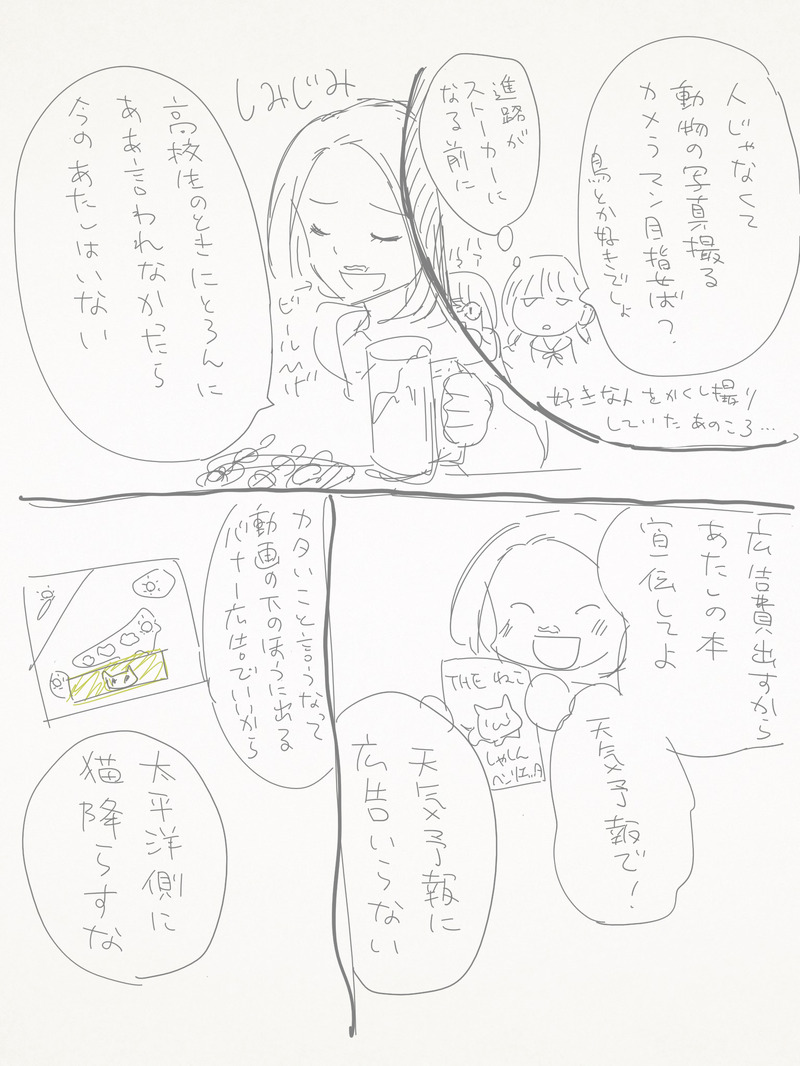 人じゃなくて
動物の写真撮る
カメラマン目指せば?
鳥とか好きでしょ
進路が
ストーカーに
なる前に
好きな人をかくし撮り
していたあのころ…
しみじみ
高校生のときにとろんに
ああ言われなかったら
今のあたしはいない
ビールひげ
広告費出すから
あたしの本
宣伝してよ
天気予報で!
THE ねこ
しゃしん
天気予報に
広告いらない
カタいこと言うなって
動画の下のほうに出る
バナー広告でいいから
太平洋側に
猫降らすな